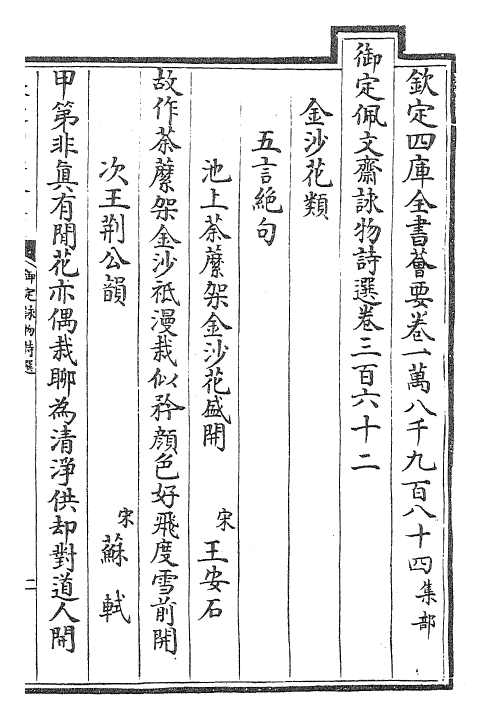 欽定四庫全書薈要卷一萬八千九百八十四集部
御定佩文齋詠物詩選卷三百六十二
金沙花類
五言絶句
池上荼蘼架金沙花盛開 宋 王安石
故作荼蘼架金沙祗漫栽似矜顔色好飛度雪前開
次王荆公韻 宋 蘇軾
甲第非眞有閒花亦偶栽聊為清淨供却對道人開
御定詠物詩選